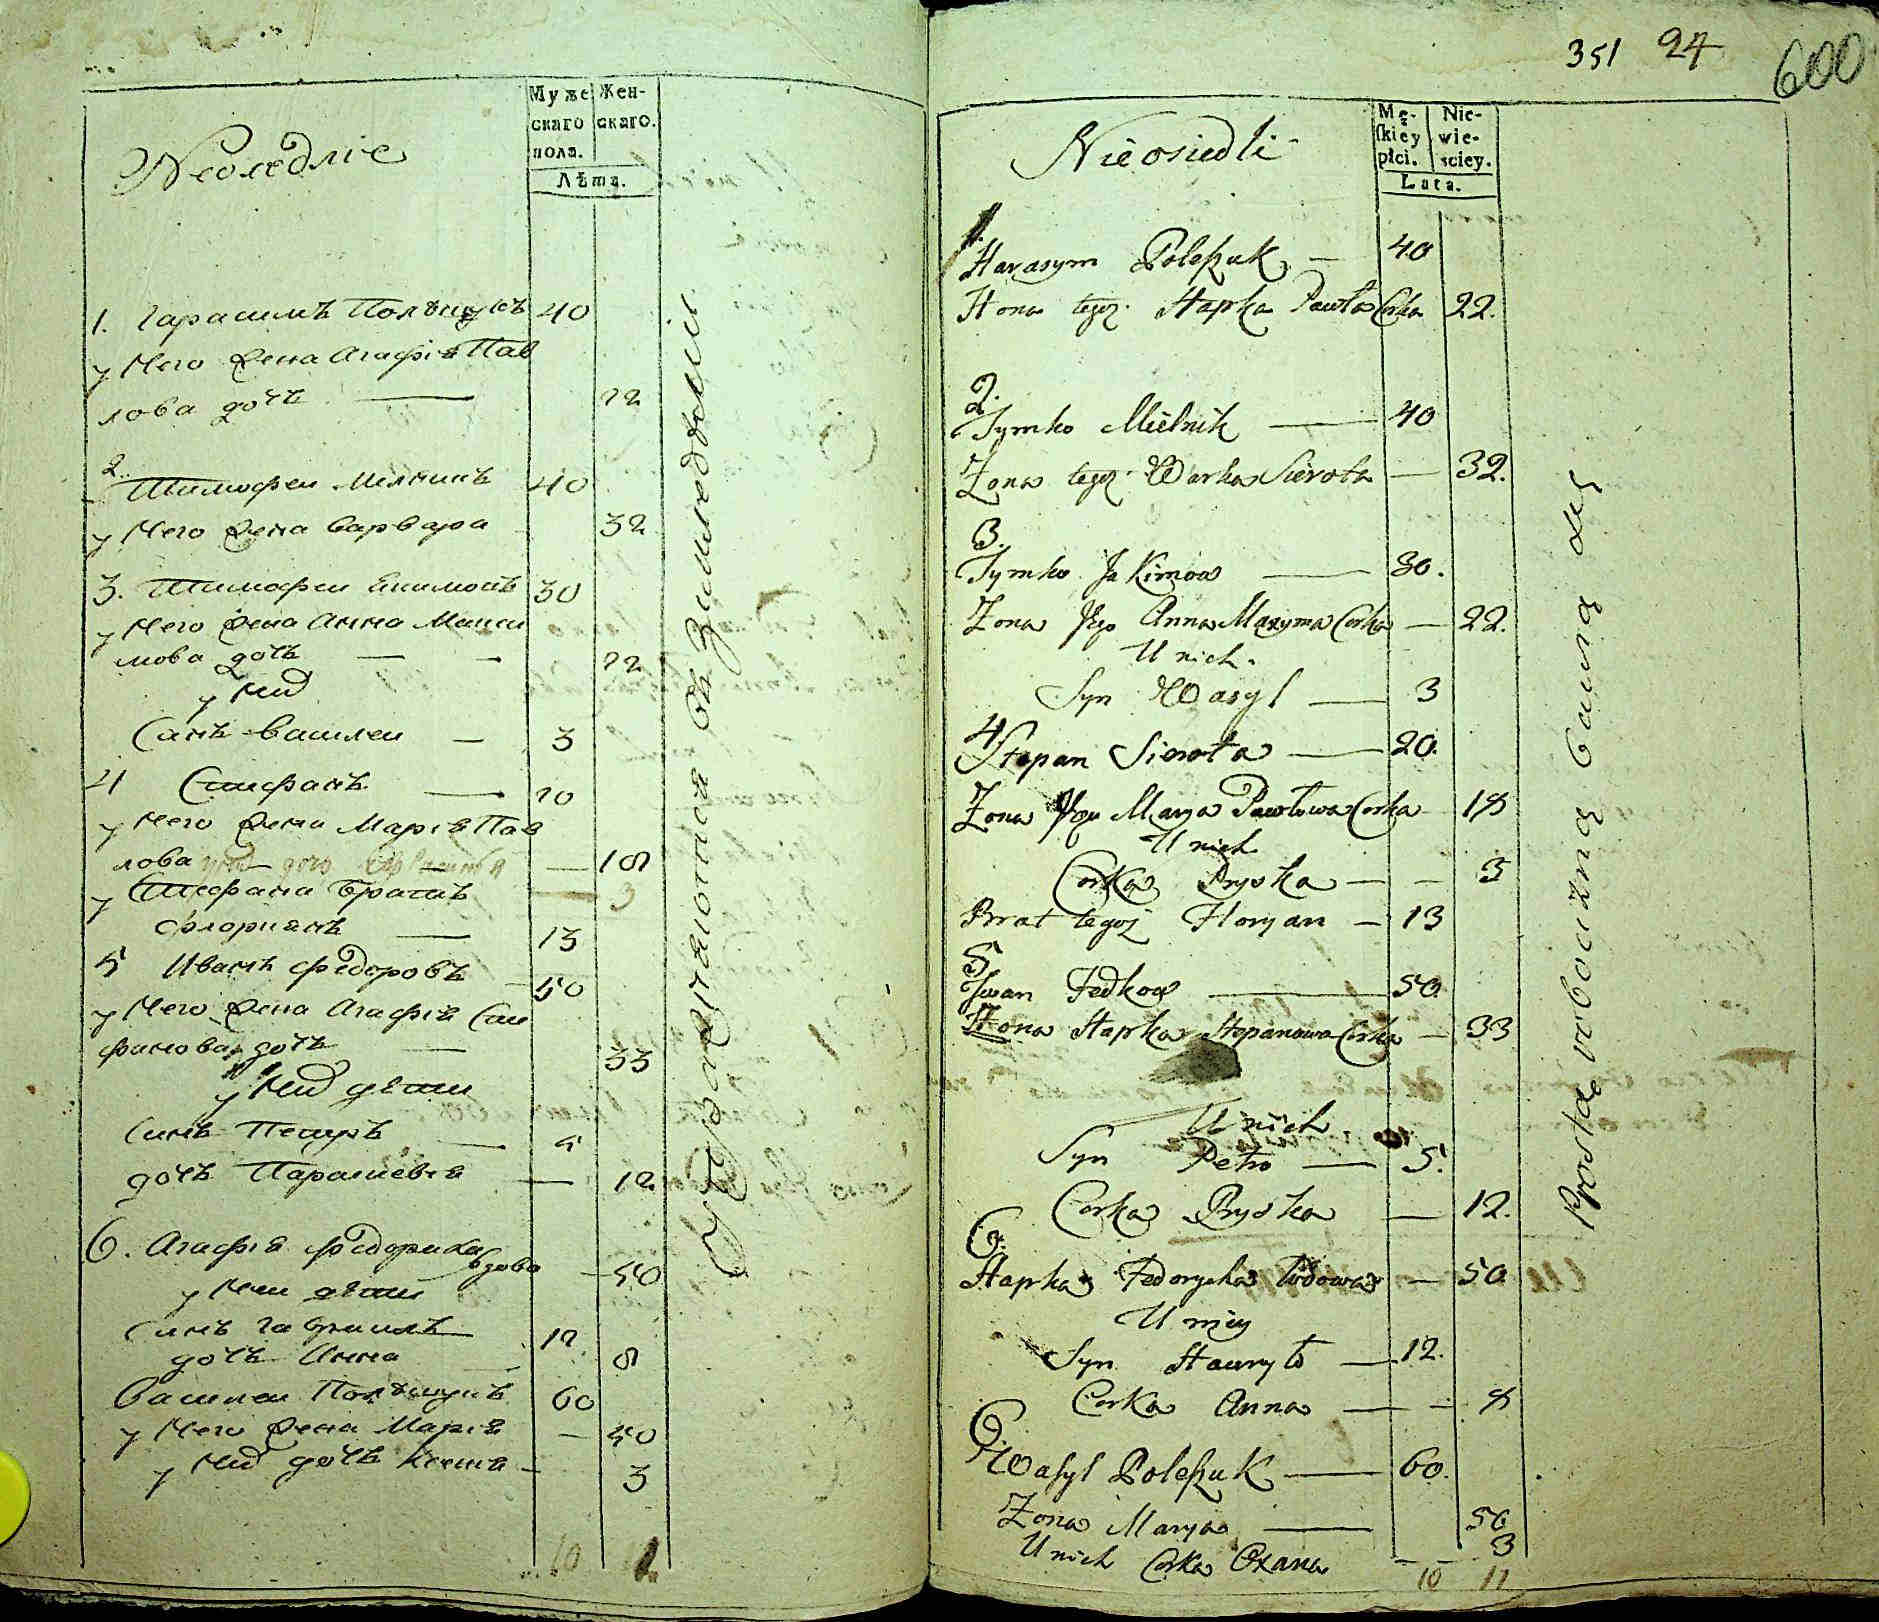 Муже
скаго
пола.
Жен-
скаго.
Лѣта.
Неоседліе
1. Гарасимъ Полѣщукъ 40
у Него Жена Агафія Пав
лова дочь — 22
2. Тимофеи Мелникъ 40
у Него Жена Варвара 32
3. Тимофеи Екимовъ 30
у Него Жена Анна Макси
мова дочь — 22
у них
Синъ Василеи — 3
4 Стефанъ — 20
у Него Жена Марія Пав
лова — 18
у Стефана братъ 3
Флориянъ — 13
5 Иванъ Федоровъ 50
у Него Жена Агафія Сте
фанова дочь — 33
у них дети
Синъ Петръ — 5
дочь Параскевія — 12
6. Агафія Федориха вдова — 50
у Неи дети
Синъ Гавриилъ 12
дочь Анна 8
Василеи Полѣщукъ 60
у Него Жена Марія — 50
у них дочь Ксенія — 3
10
351 24 600
Mę-
skiey
płci.
Nie-
wie-
sciey.
Lata.
Nieosiedli
1.
Harasym Poleszuk — 40
Żona tegoż Hapka Pawła Corka 22.
2.
Tymko Mielnik — 40
Żona tegoż Warka Sierota — 32.
3.
Tymko Jakimow — 30.
Żona Jego Anna Maxyma Corka — 22.
U nich.
Syn Wasyl — 3
4
Stepan Sierota — 20.
Żona Jego Marya Pawłowa Corka 18
U nich
Corka Pryska — — 3
Brat tegoż Floryan — 13
5
Iwan Fedkow — 50
Żona Hapka Stepanowa Corka — 33
U nich
Syn Petro — 5.
Corka Pryska — 12.
6.
Hapka Fedorycha Wdowa — 50
U niey
Syn Hawryło — 12.
Corka Anna — - 8
6.
Wasyl Poleszuk — 60.
Żona Marya — 50
U nich Corka Oxana 3
10 11